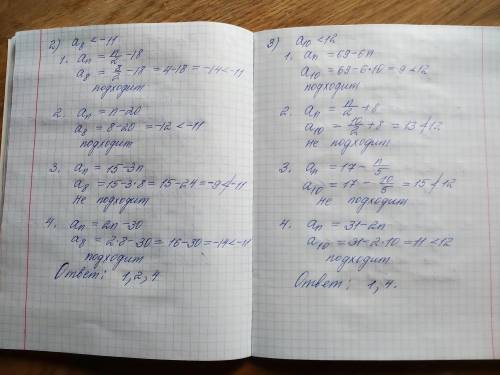 2) a₈ < -11
1. aₙ = n/2 - 18
a₈ = 8/2 - 18 = 4 - 18 = -14 < -11
подходит
2. aₙ = n - 20
a₈ = 8 - 20 = -12 < -11
подходит
3. aₙ = 15 - 3n
a₈ = 15 - 3·8 = 15 - 24 = -9 ≮ -11
не подходит
4. aₙ = 2n - 30
a₈ = 2·8 - 30 = 16 - 30 = -14 < -11
подходит
Ответ: 1, 2, 4
3) a₁₀ < 12
1. aₙ = 69 - 6n
a₁₀ = 69 - 6·10 = 9 < 12
подходит
2. aₙ = n/2 + 8
a₁₀ = 10/2 + 8 = 13 ≮ 12
не подходит
3. aₙ = 17 - n/5
a₁₀ = 17 - 10/5 = 15 ≮ 12
не подходит
4. aₙ = 31 - 2n
a₁₀ = 31 - 2·10 = 11 < 12
подходит
Ответ: 1, 4.